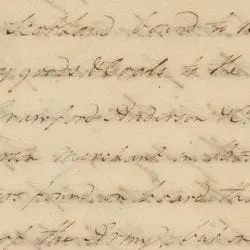 Scotland bound to
goods & Coals to the
Crawford Anderson & C
Merchant in
found on board th
of the Army